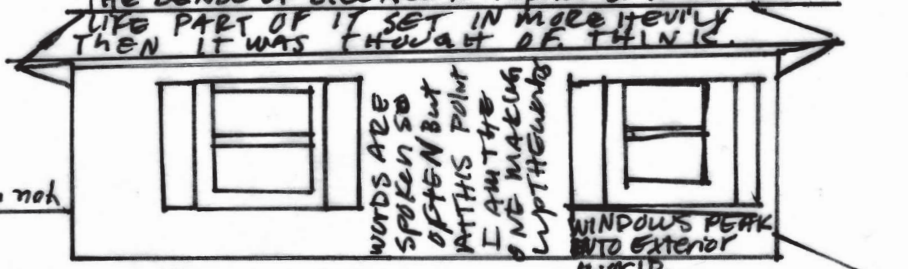 LIFE PART OF IT SET IN MORE HEVILY
THEN IT WAS THOUGH OF. THIN IS.
not
WORDS ARE
SPOKEN SO
OFTEN BUT
AT THIS POINT
I AM THE
ONE MAKING
UP THE WORDS
WINDOWS PEAK
INTO Exterior